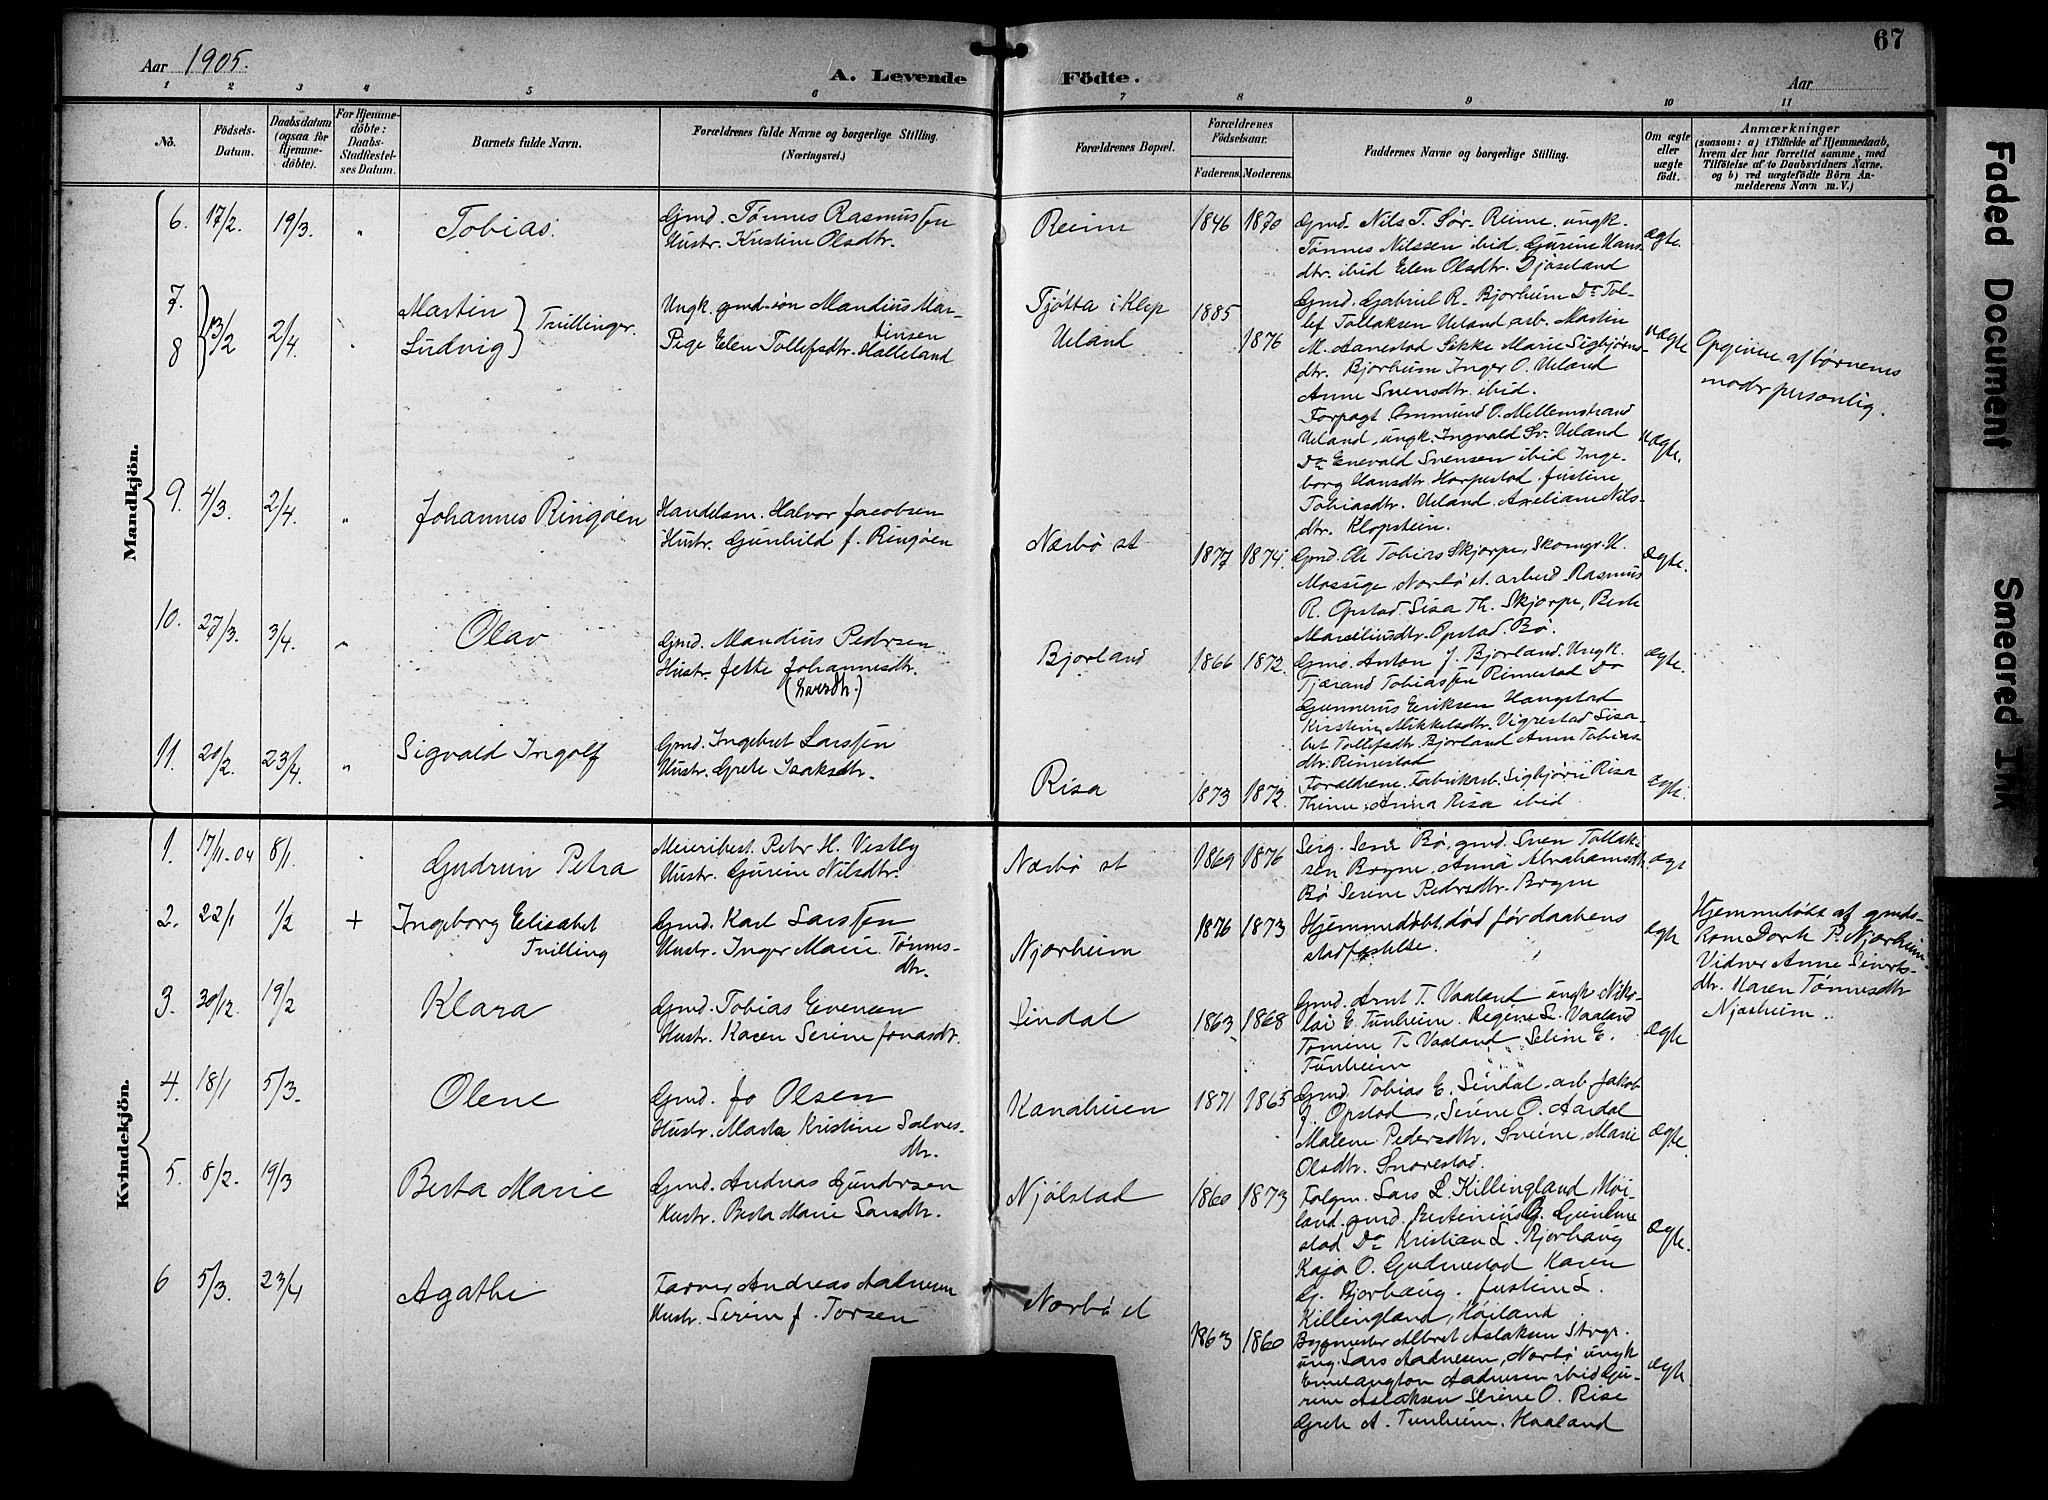 67
Aar 1905.
A. Levende Födte.
Aar
1 2 3 4 5 6 7 8 9 10 11
No.
Födsels-
Datum.
Daabsdatum
(ogsaa for
Hjemme-
döbte).
For Hjemme-
döbte:
Daabs-
Stadfæstel-
ses Datum.
Barnets fulde Navn.
Forældrenes fulde Navne og borgerlige Stilling.
(Næringsvei.)
Forældrenes Bopæl.
Forældrenes
Födselsaar.
Faderens. Moderens.
Faddernes Navne og borgerlige Stilling.
Om ægte
eller
uægte
födt.
Anmærkninger
(saasom: a) i Tilfælde af Hjemmedaab,
hvem der har forrettet samme, med
Tilföielse af to Daabsvidners Navne,
og b) ved uægtefödte Börn An-
melderens Navn m. V.)
Mandkjön.
6. 17/2. 19/3. " Tobias.
Gmd. Tønnes Rasmussen
Hustr. Kristine Olsdtr.
Reime 1846 1870
Gmd. Nils T. Sør-Reime, ungk.
Tønnes Nilssen ibid, Gurine Hans-
dtr. ibid Elen Olsdtr. Djøseland
ægte.
7. 8 13/2 2/4. "
Martin
Ludvig } Tvillinger.
Ungk. gmd-søn Mandius Mar-
tinsen
Pige Elen Tollefsdtr. Halleland
Tjøtta i Klep
Ueland
1885
1876
Gmd. Gabriel R. Bjorheim Do Tol-
lef Tollaksen Ueland, arb. Martin
M. Aanestad Sikke Marie Sigbjørns-
dtr. Bjorheim Inger O. Ueland
Anne Svensdtr. ibid.
uægte
Opgivne af børnenes
moder personlig.
Forpagt. Ommund O. Mellemstrand
Ueland, ungk. Ingvald Sv. Ueland
Do Enevald Svensen ibid Inge-
borg Hansdtr. Horpestad. Justine
Tobiasdtr. Ueland. Axeliane Nils-
dtr. Klopstein.
uægte.
9. 4/3. 2/4. " Johannes Ringøen
Handelsm. Halvor Jacobsen
Hustr. Gunhild f. Ringøen
Nærbø st 1877 1874.
Gmd. Ole Tobias Skjorpe, Skomgr. U.
Mossige Nærbø st. arbeid. Rasmus
R. Opstad. Lisa Th. Skjorpe, Berte
Marseliusdtr. Opstad. Bø.
ægte.
10. 27/3. 3/4. " Olav
Gmd. Mandius Pedersen
Hustr. Jette Johannesdtr.
(Larsdtr.)
Bjorland 1866 1872.
Gmd. Anton J. Bjorland. Ungk.
Tjærand Tobiassen Rimestad Do
Gunnerus Eriksen Haugstad
Kirstine Mikkelsdtr. Vigrestad Lisa-
bet Tollefsdtr. Bjorland Anne Tobias-
dtr. Rimestad
ægte.
11. 20/2. 23/4. " Sigvald Ingolf
Gmd. Ingebret Larssen
Hustr. Grete Isaksdtr.
Risa 1873 1872.
Forældrene. Fabrikarb. Sigbjørn Risa
Thime, Anna Risa ibid
ægte.
Kvindekjön.
1. 17/11-04 8/1. Gudrun Petra
Meieribest. Peter H. Vestly
Hustr. Gurine Nilsdtr.
Nærbø st 1869 1876
Bø, gmd. Sven Tollak-
sen Bryne, Anna Abrahamsdtr
Bø Serine Pedersdtr. Bryne
ægt
2. 22/1 1/2 + Ingeborg Elisabet
Tvilling
Gmd. Karl Larssen
Hustr. Inger Marie Tønnes-
dtr.
Njærheim 1876 1873
Hjemmedøbt. død før daabens
stadfæstelse.
ægte
Hjemmedøbt af gmds-
kone Dorte P. Njærheim
Vidner Anne Sivets-
dtr. Karen Tønnesdtr
Njærheim.
3. 30/12. 19/2 Klara
Gmd. Tobias Evensen
Hustr. Karen Serine Jonasdtr.
Lindal 1863 1868
Gmd. Arnt T. Vaaland ungk Niko-
lai E. Tunheim. Regine L. Vaaland
Tomine T. Vaaland Seline E.
Tunheim
ægte
4. 18/1 5/3. Olene
Gmd. Jo Olsen
Hustr. Marta Kristine Salves-
dtr.
Kanaheien 1871 1865
Gmd. Tobias E. Lindal. arb. Jakob
J. Opstad, Serine O. Aardal
Malene Pedersdtr. Marie
Olsdtr. Snorestad.
ægte.
5. 8/2. 19/3 Berta Marie
Gmd. Andreas Gundersen
Hustr. Berta Marie Larsdtr.
Njølstad 1860 1873
Folgm. Lars L. Killingland, Høi-
land. gmd. Bertinius G. Gudme-
stad Do Kristian L. Bjorhaug
Kaja O. Gudmestad Karen
G. Bjorhaug. Justine L.
Killingland, Høiland
ægte.
6 5/3. 23/4 Agathe
Farver Andreas Aadnesen
Hustr. Serine f. Torsen
Nærbø st 1863 1860
Bygmester Albret Aslaksen Stvgr.
ung. Lars Aadnesen, Nærbø ungk
Aadnesen ibid Gu-
rine Aslaksen Serine O. Rise
Grete A. Tunheim. Haaland
ægte.
Faded Document
Smeared Ink